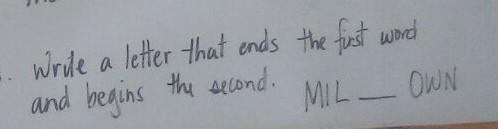 . Write a letter that ends the first word
and begins the second. MIL __ OWN